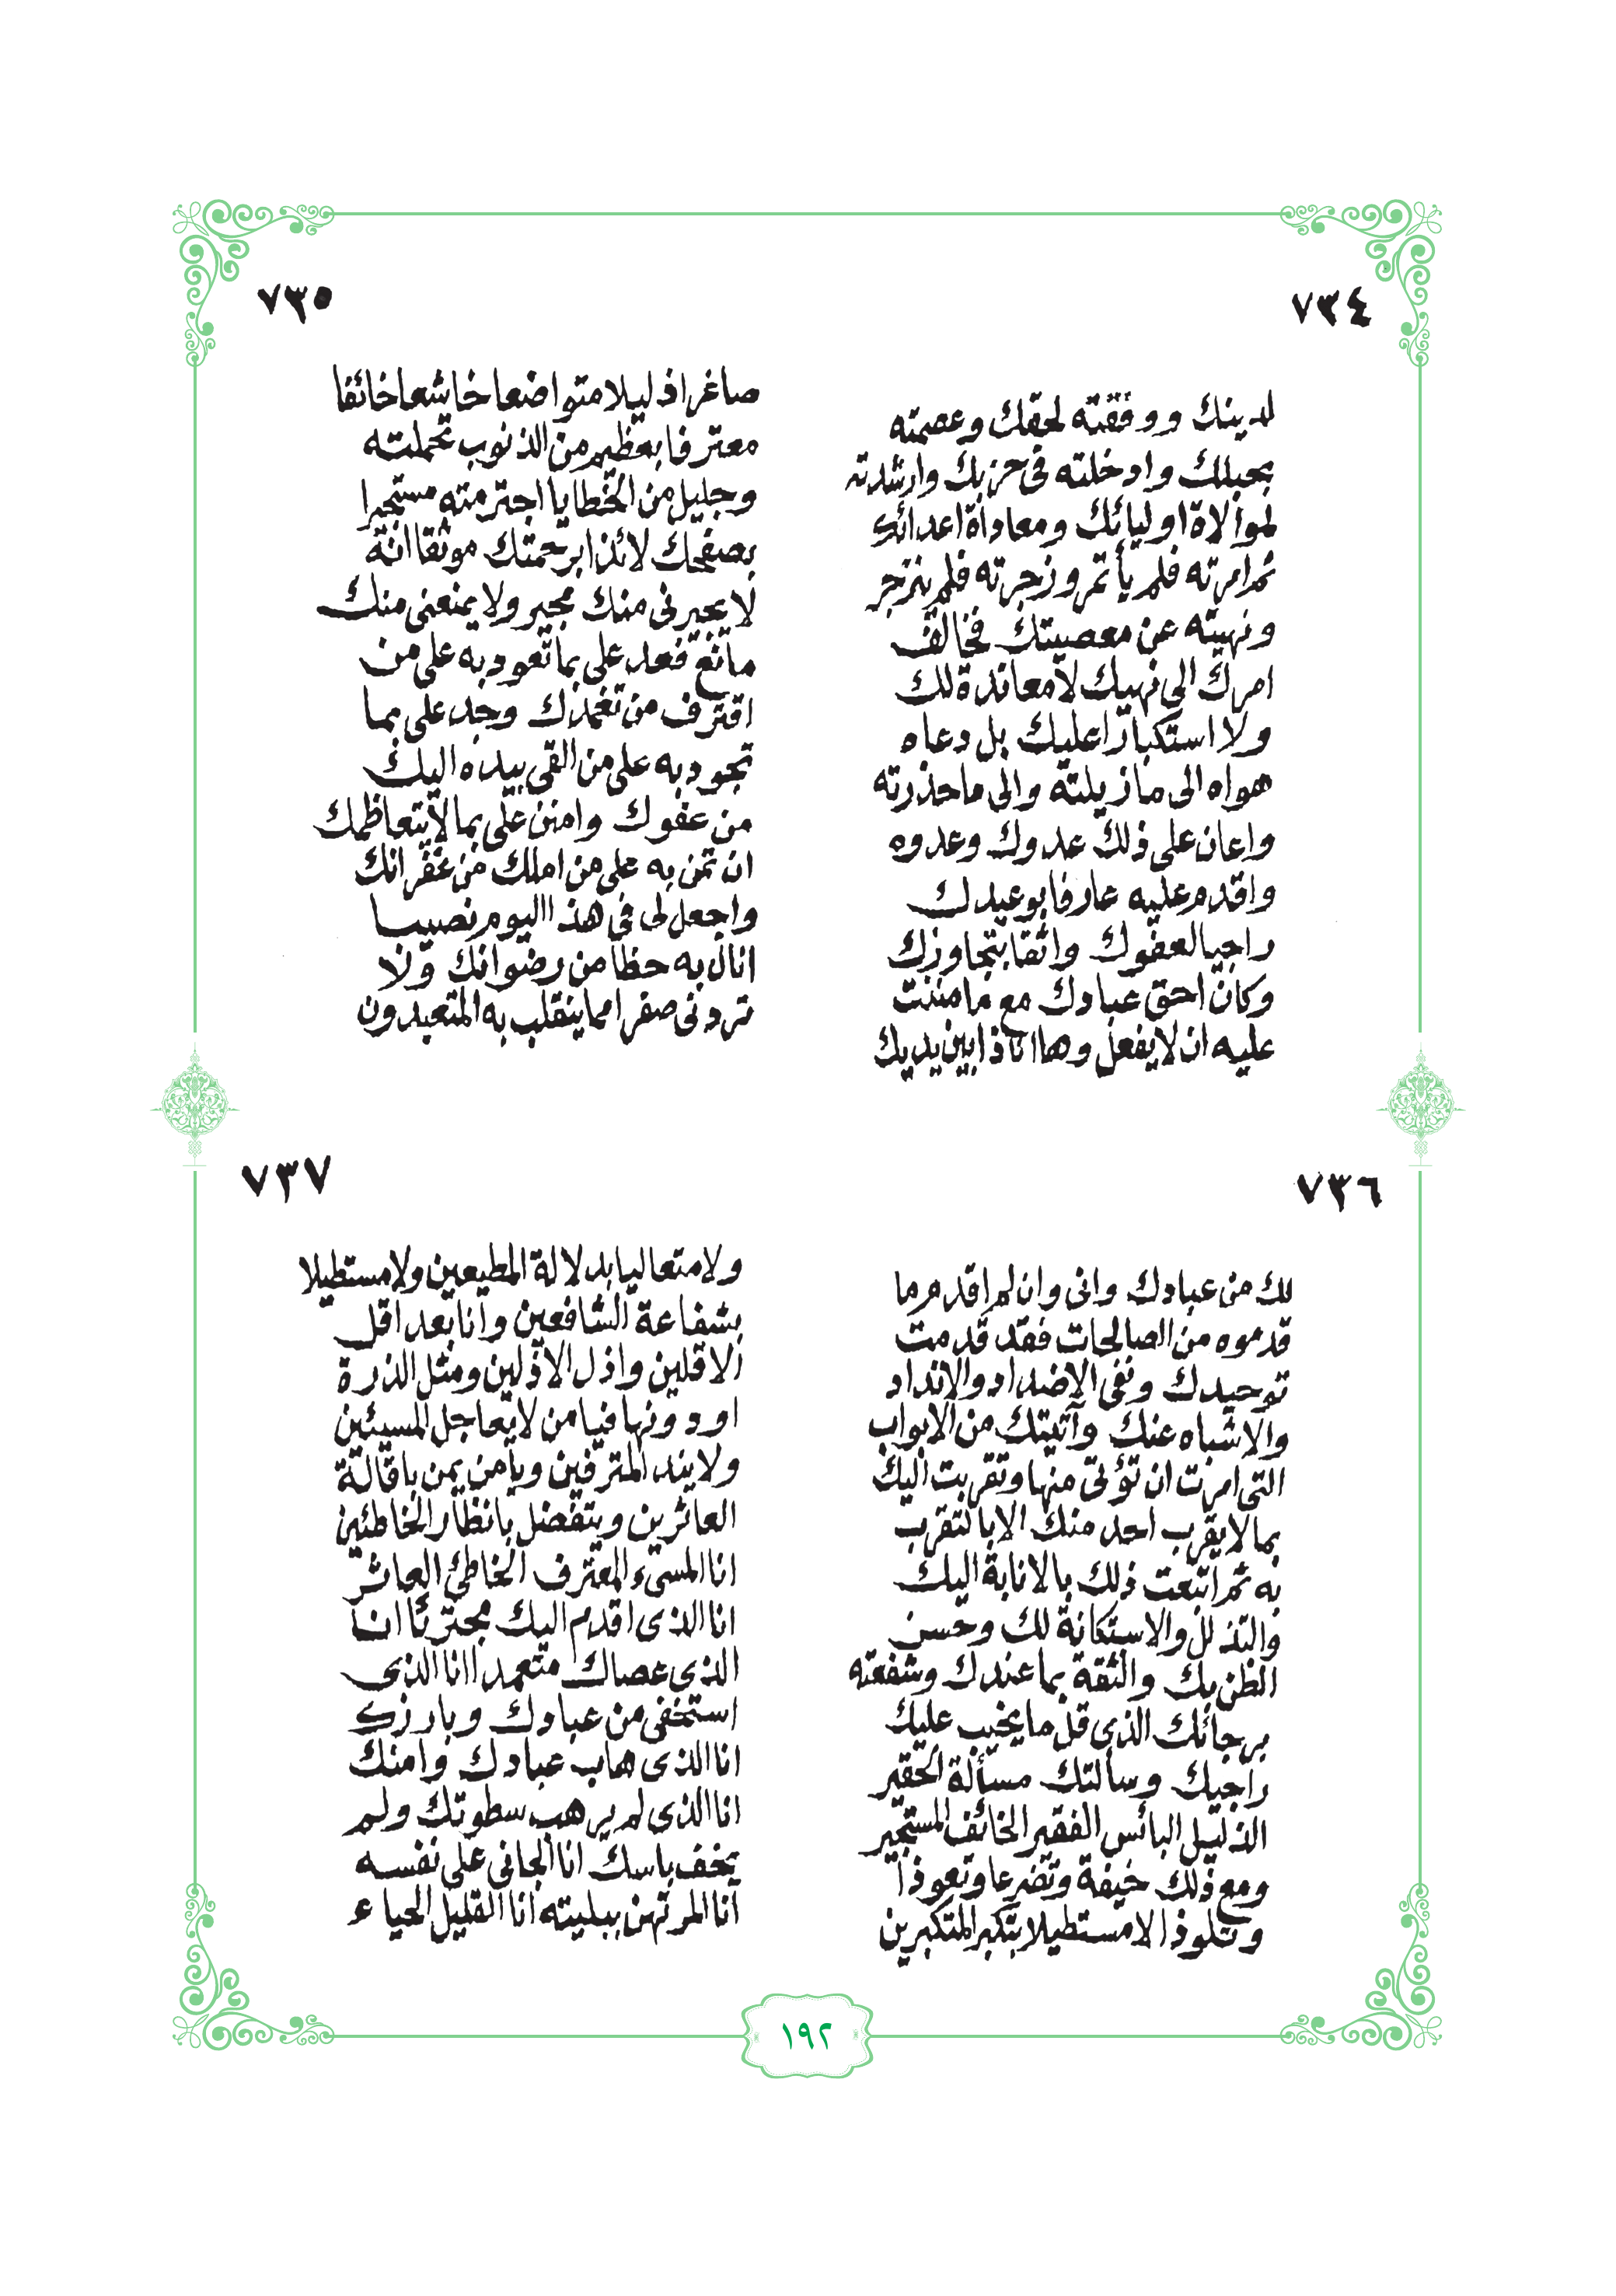 ٧٣٤
لدينك ووفقته لحقك وعصمته
بحبلك وادخلته فى حزبك وارشدته
لموالاة اوليائك ومعاداة اعدائك
ثم امرته فلم يأتمر وزجرته فلم ينزجر
ونهيته عن معصيتك فخالف
امرك الى نهيك لا معاندة لك
ولا استكبارا عليك بل دعاه
هواه الى ما زيلته والى ما حذرته
واعان على ذلك عدوك وعدوه
واقدم عليه عارفا بوعيدك
راجيا لعفوك واثقا بتجاوزك
وكان احق عبادك مع ما مننت
عليه ان لا يفعل وها انا ذا بين يديك
٧٣٥
صاغرا ذليلا متواضعا خاشعا خائفا
معترفا بعظيم من الذنوب تحملته
وجليل من الخطايا اجترمته مستجيرا
بصفحك لائذا برحمتك موثقا انه
لا يجيرنى منك مجير ولا يمنعنى منك
مانع فعد على بما تعود به على من
اقترف من تغمدك وجد على بما
تجود به على من القى بيده اليك
من عفوك وامنن على بما لا يتعاظمك
ان تمن به على من املك من غفرانك
واجعل لى فى هذا اليوم نصيبا
انال به حظا من رضوانك ولا
تردنى صفرا مما ينقلب به المتعبدون
٧٣٦
لك من عبادك وانى وان لم اقدم ما
قدموه من الصالحات فقد قدمت
توحيدك ونفى الاضداد والانداد
والاشباه عنك وآتيتك من الابواب
التى امرت ان تؤتى منها وتقربت اليك
بما لا يقرب احد منك الا بالتقرب
به ثم اتبعت ذلك بالانابة اليك
والتذلل والاستكانة لك وحسن
الظن بك والثقة بما عندك وشفعته
برجائك الذى قل ما يخيب عليك
راجيك وسألتك مسألة الحقير
الذليل البائس الفقير الخائف المستجير
ومع ذلك خيفة وتضرعا وتعوذا
وتلوذا لا مستطيلا بتكبر المتكبرين
٧٣٧
ولا متعاليا بدلالة المطيعين ولا مستطيلا
بشفاعة الشافعين وانا بعد اقل
الاقلين واذل الاذلين ومثل الذرة
او دونها فيا من لا يعاجل المسيئين
ولا يند المترفين ويا من يمن باقالة
العاثرين ويتفضل بانظار الخاطئين
انا المسىء المعترف الخاطئ العاثر
انا الذى اقدم اليك مجترئا انا
الذى عصاك متعمدا انا الذى
استخفى من عبادك وبارزك
انا الذى هاب عبادك وامنك
انا الذى لم يرهب سطوتك ولم
يخف باسك انا الجانى على نفسه
انا المرتهن ببليته انا القليل الحياء
١٩٢